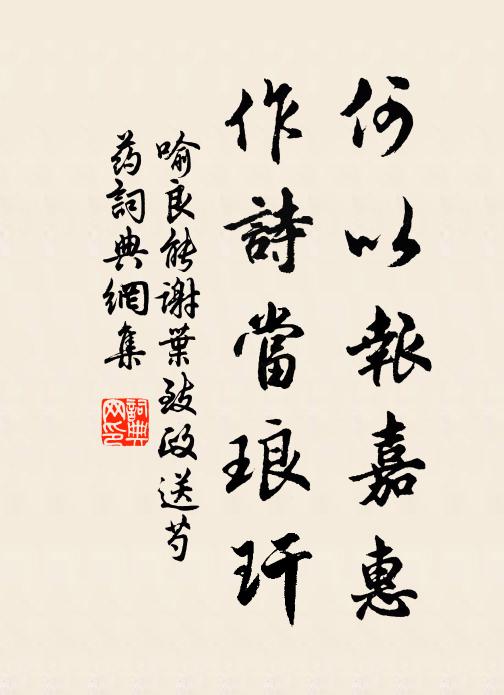 何以報嘉惠
作詩當琅玕
喻良能謝葉致政送芍
葯詞典網集
詞典
网印